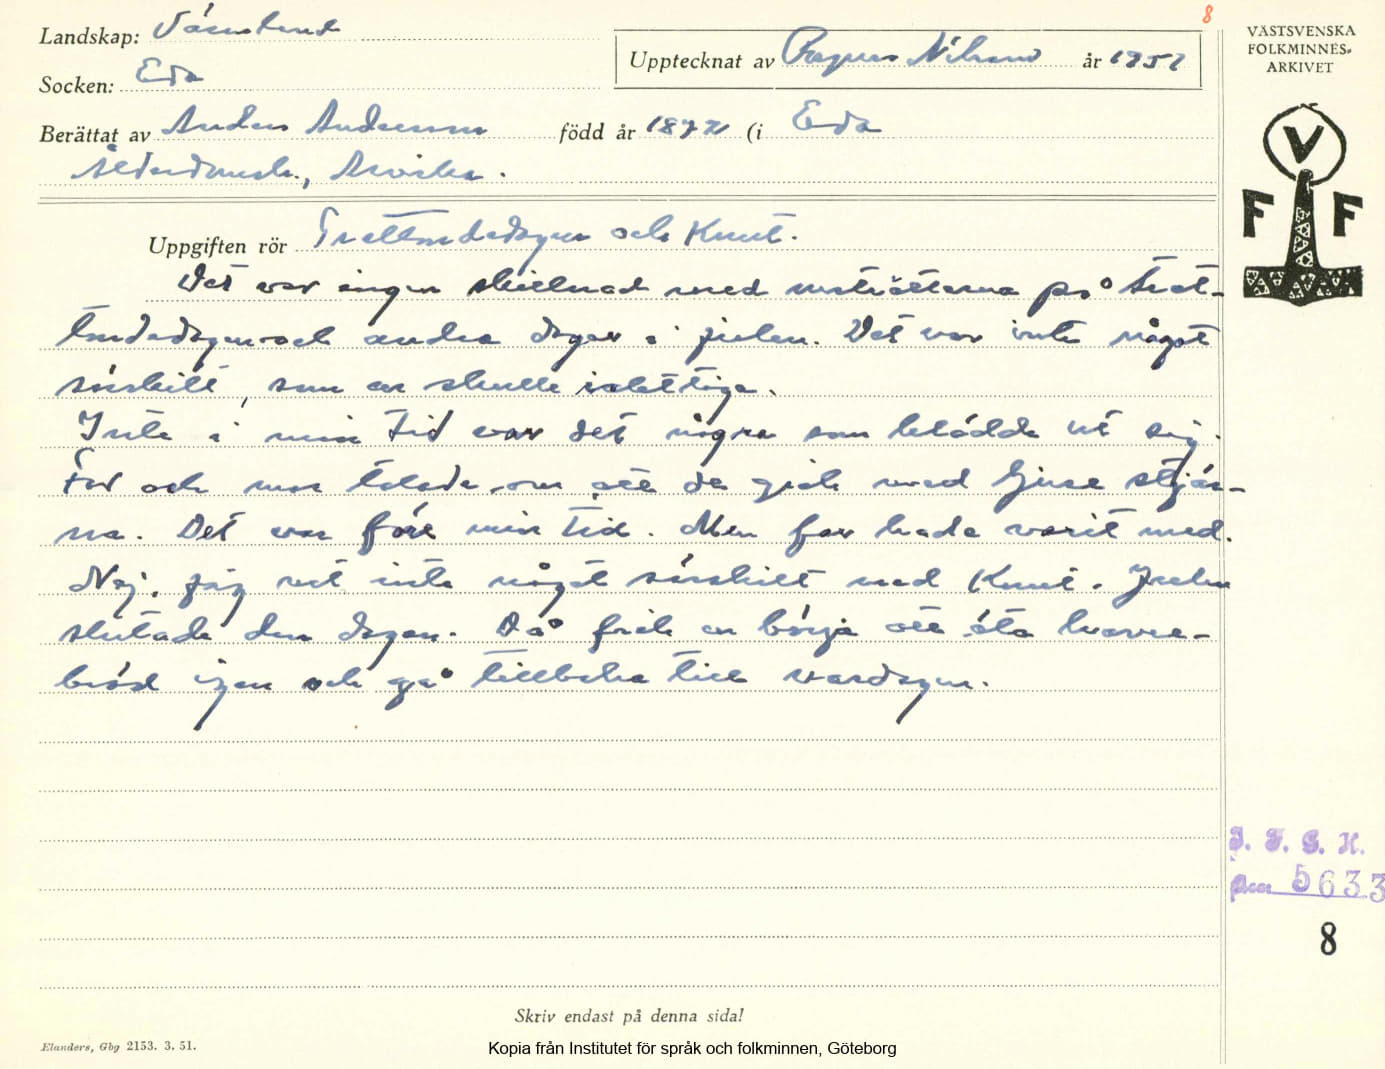 8
Landskap: Värmland
Upptecknat av Ragnar Nilsson år 1952
VÄSTSVENSKA
FOLKMINNES-
ARKIVET
Socken: Eda
Berättat av Anders Andersson född år 1872 (i Eda
Arvika.
V
F F
Uppgiften rör Trettondedagen och Knut.
Det var ingen skillnad med maträtterna på tret-
tondedagen och andra dagar i julen. Det var inte något
särskilt, som en skulle iakttaga.
Inte i min tid var det några som klädde ut sig.
Far och mor talade om att de gick med ljusa stjär-
na. Det var före min tid. Men far hade varit med.
Nej, jag vet inte något särskilt med Knut. Julen
slutade den dagen. Då fick en börja att äta havre-
bröd igen och gå tillbaka till vardagen.
I. F. G. H.
5633
8
Skriv endast på denna sida!
Elanders, Gbg 2153. 3. 51.
Kopia från Institutet för språk och folkminnen, Göteborg